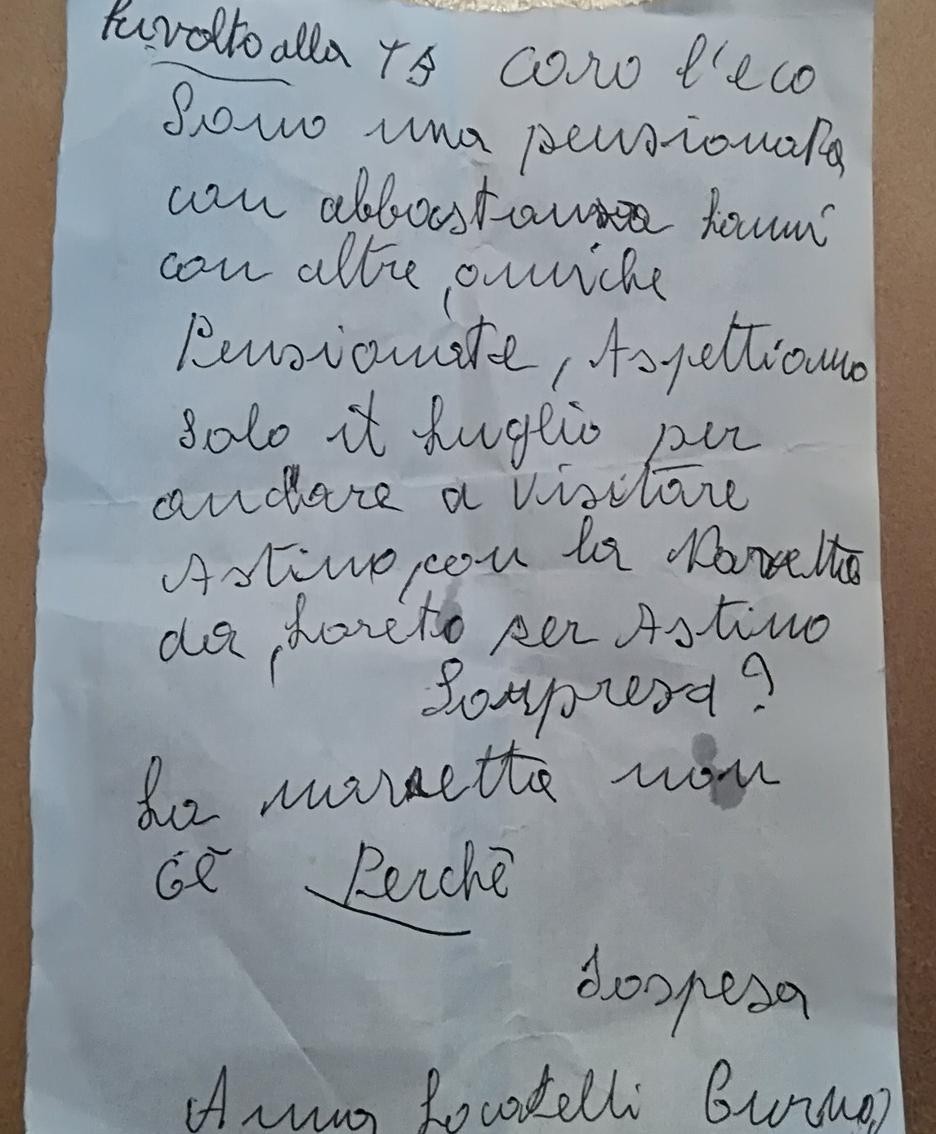 Rivolto alla TB caro l'eco
Sono una pensionata
con abbastanza hanni
con altre, amiche
Pensionate, Aspettiamo
solo it Luglio per
andare a visitare
Astino, con la Navetta
da, Loreto per Astino
Sorpresa?
La navetta non
cé Perchē
Sospesa
Anna Locatelli Curno